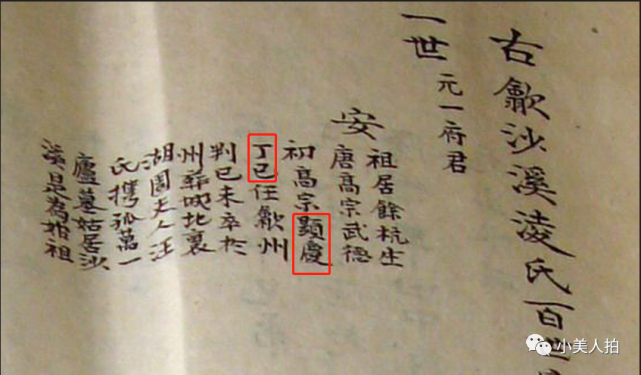 右歙沙溪淩氏百
一世 元一府君
安
祖居餘杭生
唐高宗武德
初高宗顕慶
丁巳任歙州
判已未卒於
州葬城北襄
湖園夫人汪
氏携孤萬一
廬墓姑居沙
溪是為始祖
小美人拍